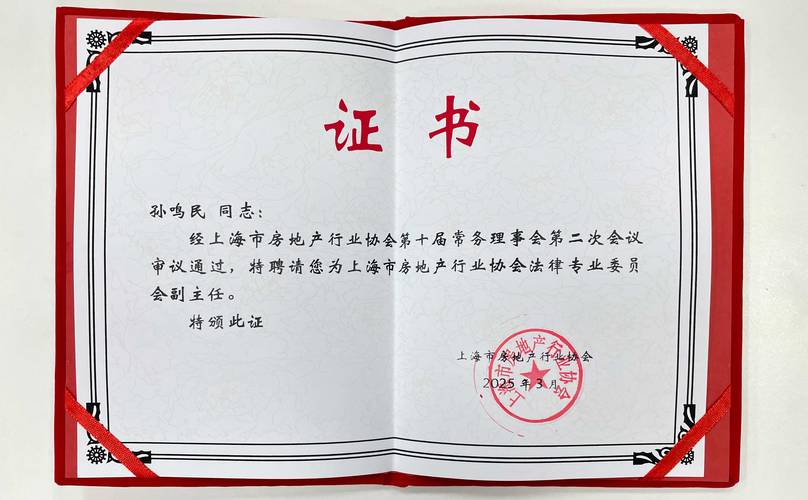 证书
孙鸣民 同志：
经上海市房地产行业协会第十届常务理事会第二次会议
审议通过，特聘请您为上海市房地产行业协会法律专业委员
会副主任。
特颁此证
上海市房地产行业协会
2025年3月
上海市房地产行业协会